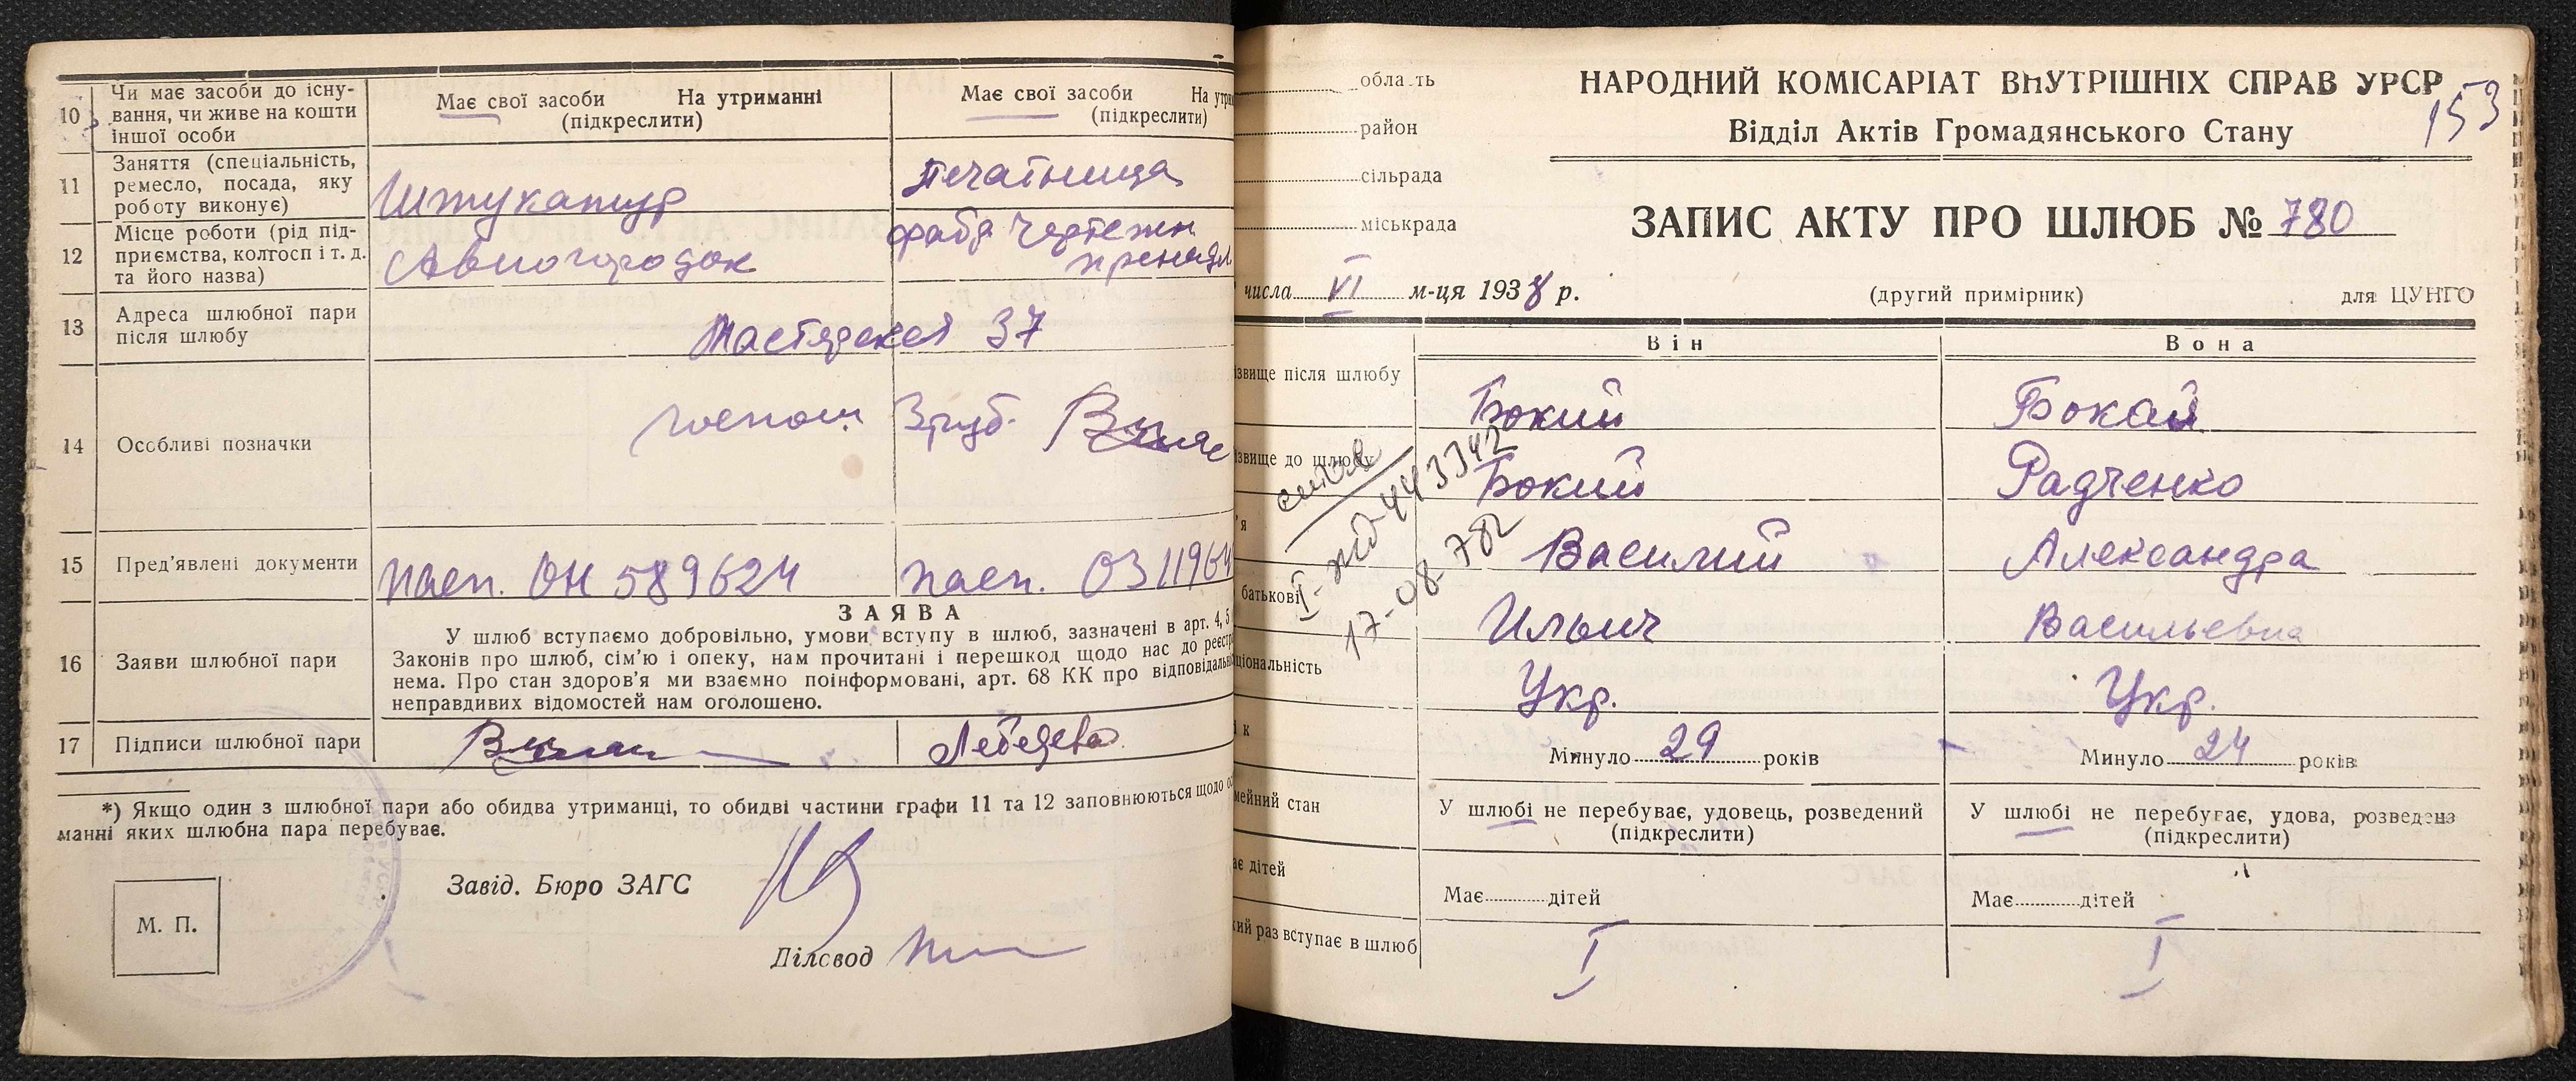 10 Чи має засоби до існу-
вання, чи живе на кошти
іншої особи
Має свої засоби На утриманні
(підкреслити)
Має свої засоби На утри
(підкреслити)
11 Заняття (спеціальність,
ремесло, посада, яку
роботу виконує)
Штукатур
печатница
12 Місце роботи (рід під-
приємства, колгосп і т. д.
та його назва)
Авиогородок
фабр чертежн
принадл
13 Адреса шлюбної пари
після шлюбу
37
14 Особливі позначки
3 руб.
15 Пред'явлені документи
пасп. ОН 589624
пасп. ОЗ 11964
ЗАЯВА
16 Заяви шлюбної пари
У шлюб вступаємо добровільно, умови вступу в шлюб, зазначені в арт. 4, 5
Законів про шлюб, сім'ю і опеку, нам прочитані і перешкод щодо нас до реєстр
нема. Про стан здоров'я ми взаємно поінформовані, арт. 68 КК про відповідальн
неправдивих відомостей нам оголошено.
17 Підписи шлюбної пари
Лебедева
*) Якщо один з шлюбної пари або обидва утриманці, то обидві частини графи 11 та 12 заповнюються щодо ос
манні яких шлюбна пара перебуває.
Завід. Бюро ЗАГС
М. П.
Діловод
область
район
сільрада
міськрада
НАРОДНИЙ КОМІСАРІАТ ВНУТРІШНІХ СПРАВ УРСР
153
Відділ Актів Громадянського Стану
ЗАПИС АКТУ ПРО ШЛЮБ № 780
числа VI м-ця 1938 р.
(другий примірник)
для ЦУНГО
Він
Вона
ізвище після шлюбу
Бокий
Бокай
ізвище до шлюбу
Бокий
Радченко
'я
Василий
Александра
батькові
Ильич
Васильевна
ціональність
Укр.
Укр.
I-жд-443342
17-08-782
і к
Минуло 29 років
Минуло 24 років
мейний стан
У шлюбі не перебуває, удовець, розведений
(підкреслити)
У шлюбі не перебуває, удова, розведена
(підкреслити)
ає дітей
Має дітей
Має дітей
кий раз вступає в шлюб
I
I